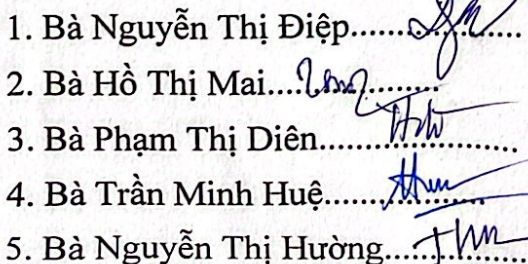 1. Bà Nguyễn Thị Điệp.............
2. Bà Hồ Thị Mai.............
3. Bà Phạm Thị Diên.................
4. Bà Trần Minh Huệ.............
5. Bà Nguyễn Thị Hường...........